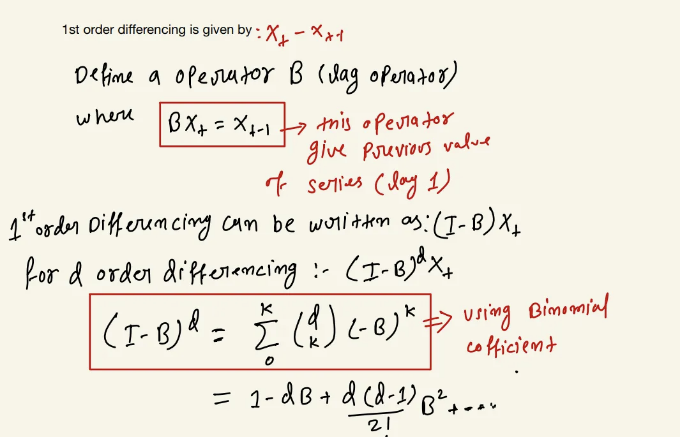 1st order differencing is given by : X_t - X_t-1
Define a operator B (lag operator)
where BX_t = X_t-1 → this operator
give previous value
of series (lag 1)
1st order Differencing can be written as: (I-B)X_t
for d order differencing :- (I-B)^d X_t
(I-B)^d = Σ_0^k (d k) (-B)^k ⇒ using Binomial
cofficient
= 1 - dB + d(d-1)/2! B^2 + ....